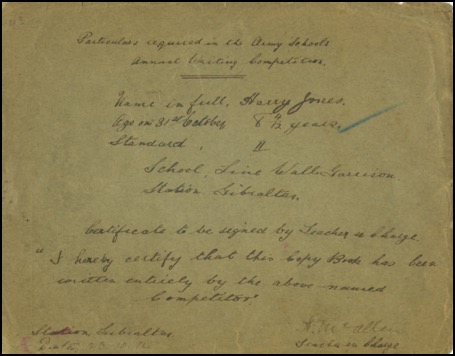 Particulars required in the Army Schools
Annual Writing Competition.
Name in full, Harry Jones.
Age on 31st October, 8 4/12 years.
Standard, II
School, Line Wall Garrison
Station, Gibraltar.
Certificate to be signed by Teacher in Charge.
"I hereby certify that this Copy Book has been
written entirely by the above named
Competitor"
Station Gibraltar
Date
Teacher in Charge